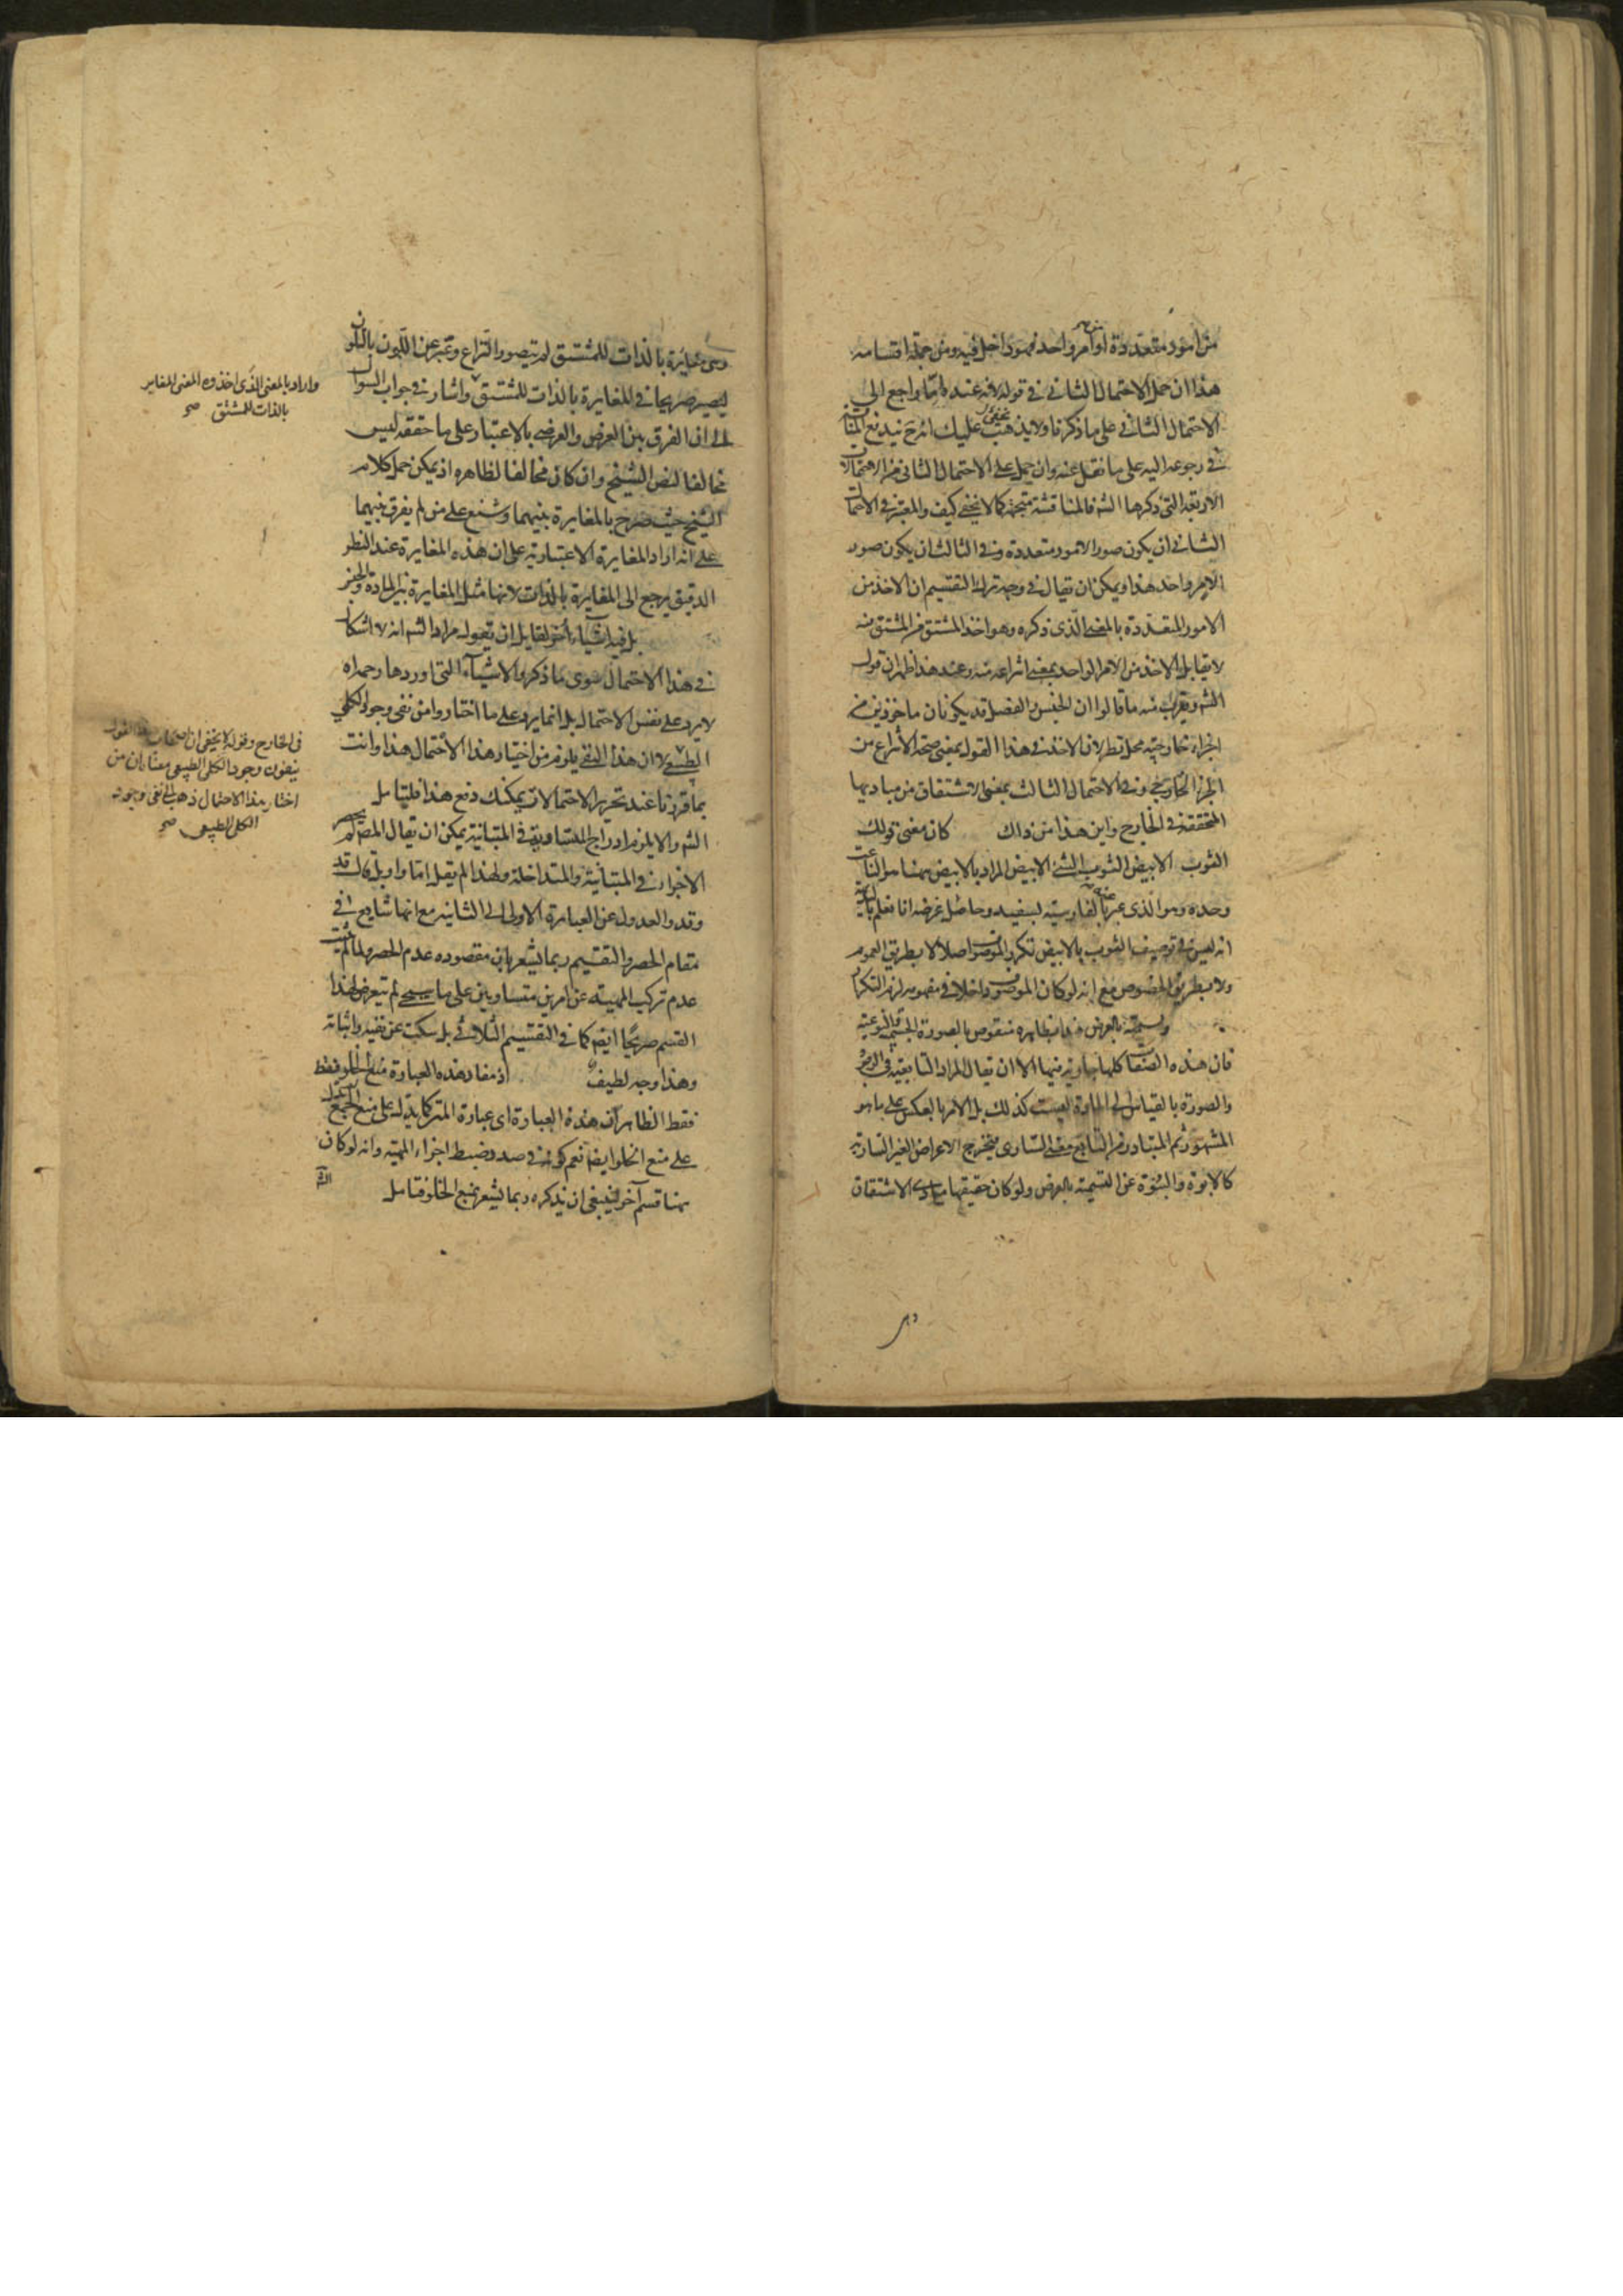 من امور متعددة او امر واحد فهو داخل فيه ومن جملة اقسامه
هذا ان حمل الاحتمال الثاني في قوله لانه عنده اما راجع الى
الاحتمال الثاني على ما ذكرنا ولا يذهب عليك انه ح يندفع
في رجوعه اليه على ما نقل عنه وان حمل على الاحتمال الثاني من الاحتمالات
الاربعة التي ذكرها الشم فالمناقشة متجهة كما لا يخفى كيف والمعتبر في الاحتمال
الثاني ان يكون صورا لامور متعددة وفي الثالث ان يكون صور
الامر واحد هذا ويمكن ان يقال في وجه ترك التقسيم ان الاخذ من
الامور المتعددة بالمعنى الذي ذكره وهو اخذ المشتق من المشتق منه
لا يقابل الاخذ من الامر الواحد بمعنى انتزاعه منه وعند هذا ظهر ان قول
الشم ويقرب منه ما قالوا ان الجنس والفصل قد يكونان ماخوذين من
اجزاء خارجية محل نظر لان الاخذ في هذا القول بمعنى صحة الانتزاع من
الجزء الخارجي وفي الاحتمال الثالث بمعنى الاشتقاق من مباديها
المتحققة في الخارج واين هذا من ذاك كان معنى قولك
الثوب الابيض الثوب الشئ الابيض المراد بالابيض هنا هو الناعت
وحده وهو الذي عبر عنه بالفارسية بسفيد وحاصل غرضه انا نعلم بداهة
انه ليس في توصيف الثوب بالابيض تكرر الموصوف اصلا لا بطريق العموم
ولا بطريق الخصوص مع انه لو كان الموصوف داخلا في مفهومه لزم التكرار
وتسميته بالعرض هذا بظاهره منقوض بالصورة الجسمية والنوعية
فان هذه الصفات كلها جارية فيها الا ان يقال المراد التابعية في الوجود
والصورة بالقياس الى المادة ليست كذلك بل الامر بالعكس على ما هو
المشهور ثم المتبادر من التابع معنى الساري فيخرج الاعراض الغير السارية
كالابوة والبنوة عن التسمية بالعرض ولو كان حقيقتها مبادى الاشتقاق
وهى
وهى مغايرة بالذات للمشتق لم يتصور النزاع وعبر عن اللون بالتلون
ليصير صريحا في المغايرة بالذات للمشتق واشار في جواب السؤال
الى ان الفرق بين العرض والعرضي بالاعتبار على ما حققه ليس
مخالفا لنص الشيخ وان كان مخالفا لظاهره اذ يمكن حمل كلام
الشيخ حيث صرح بالمغايرة بينهما وشنع على من لم يفرق بينهما
على انه اراد المغايرة الاعتبارية على ان هذه المغايرة عند النظر
الدقيق يرجع الى المغايرة بالذات لانها مثل المغايرة بين المادة والجنس
بل فيه اشياء اخر لقايل ان يقول مراد الشم انه لا اشكال
في هذا الاحتمال سوى ما ذكر والاشياء التي اوردها رحمه الله
لا يرد على نفس الاحتمال بل انما يرد على ما اختاروا من نفى وجود الكلي
الطبيعي لا ان هذا النفي يلزم من اختيار هذا الاحتمال هذا وانت
بما قررنا عند تحرير الاحتمالات يمكنك دفع هذا فليتامل
الشم والا يلزم ادراج المتساوية في المتباينة يمكن ان يقال المص لم يحصر
الاجزاء في المتباينة والمتداخلة ولهذا لم يقل اما واو بل قال قد
وقد والعدول عن العبارة الاولى الى الثانية مع انها شايع في
مقام الحصر والتقسيم ربما يشعر بان مقصوده عدم الحصر ولما لم يثبت
عدم تركيب المهية عن امرين متساويين على ما سيجئ لم يتعرض لهذا
القسم صريحا ايضا كما في التقسيم الثلاثي بل سكت عن نفيه واثباته
وهذا وجه لطيف اذ مفاد هذه العبارة منع الخلو فقط
فقط الظاهر ان هذه العبارة اى عبارة المتن كما يدل على منع الجمع يدل
على منع الخلو ايضا نعم كونه في صدد ضبط اجزاء المهية وانه لو كان
هنا قسم آخر لينبغي ان يذكره ربما يشعر بمنع الخلو فتامل
الشم
واراد بالمعنى الذي اخذوه المعنى المغاير
بالذات للمشتق صح
في الخارج وقوله لا يخفى ان اصحاب هذا القول
ينفون وجود الكلي الطبيعي معناه ان من
اختار هذا الاحتمال ذهب الى نفى وجود
الكلي الطبيعي صح